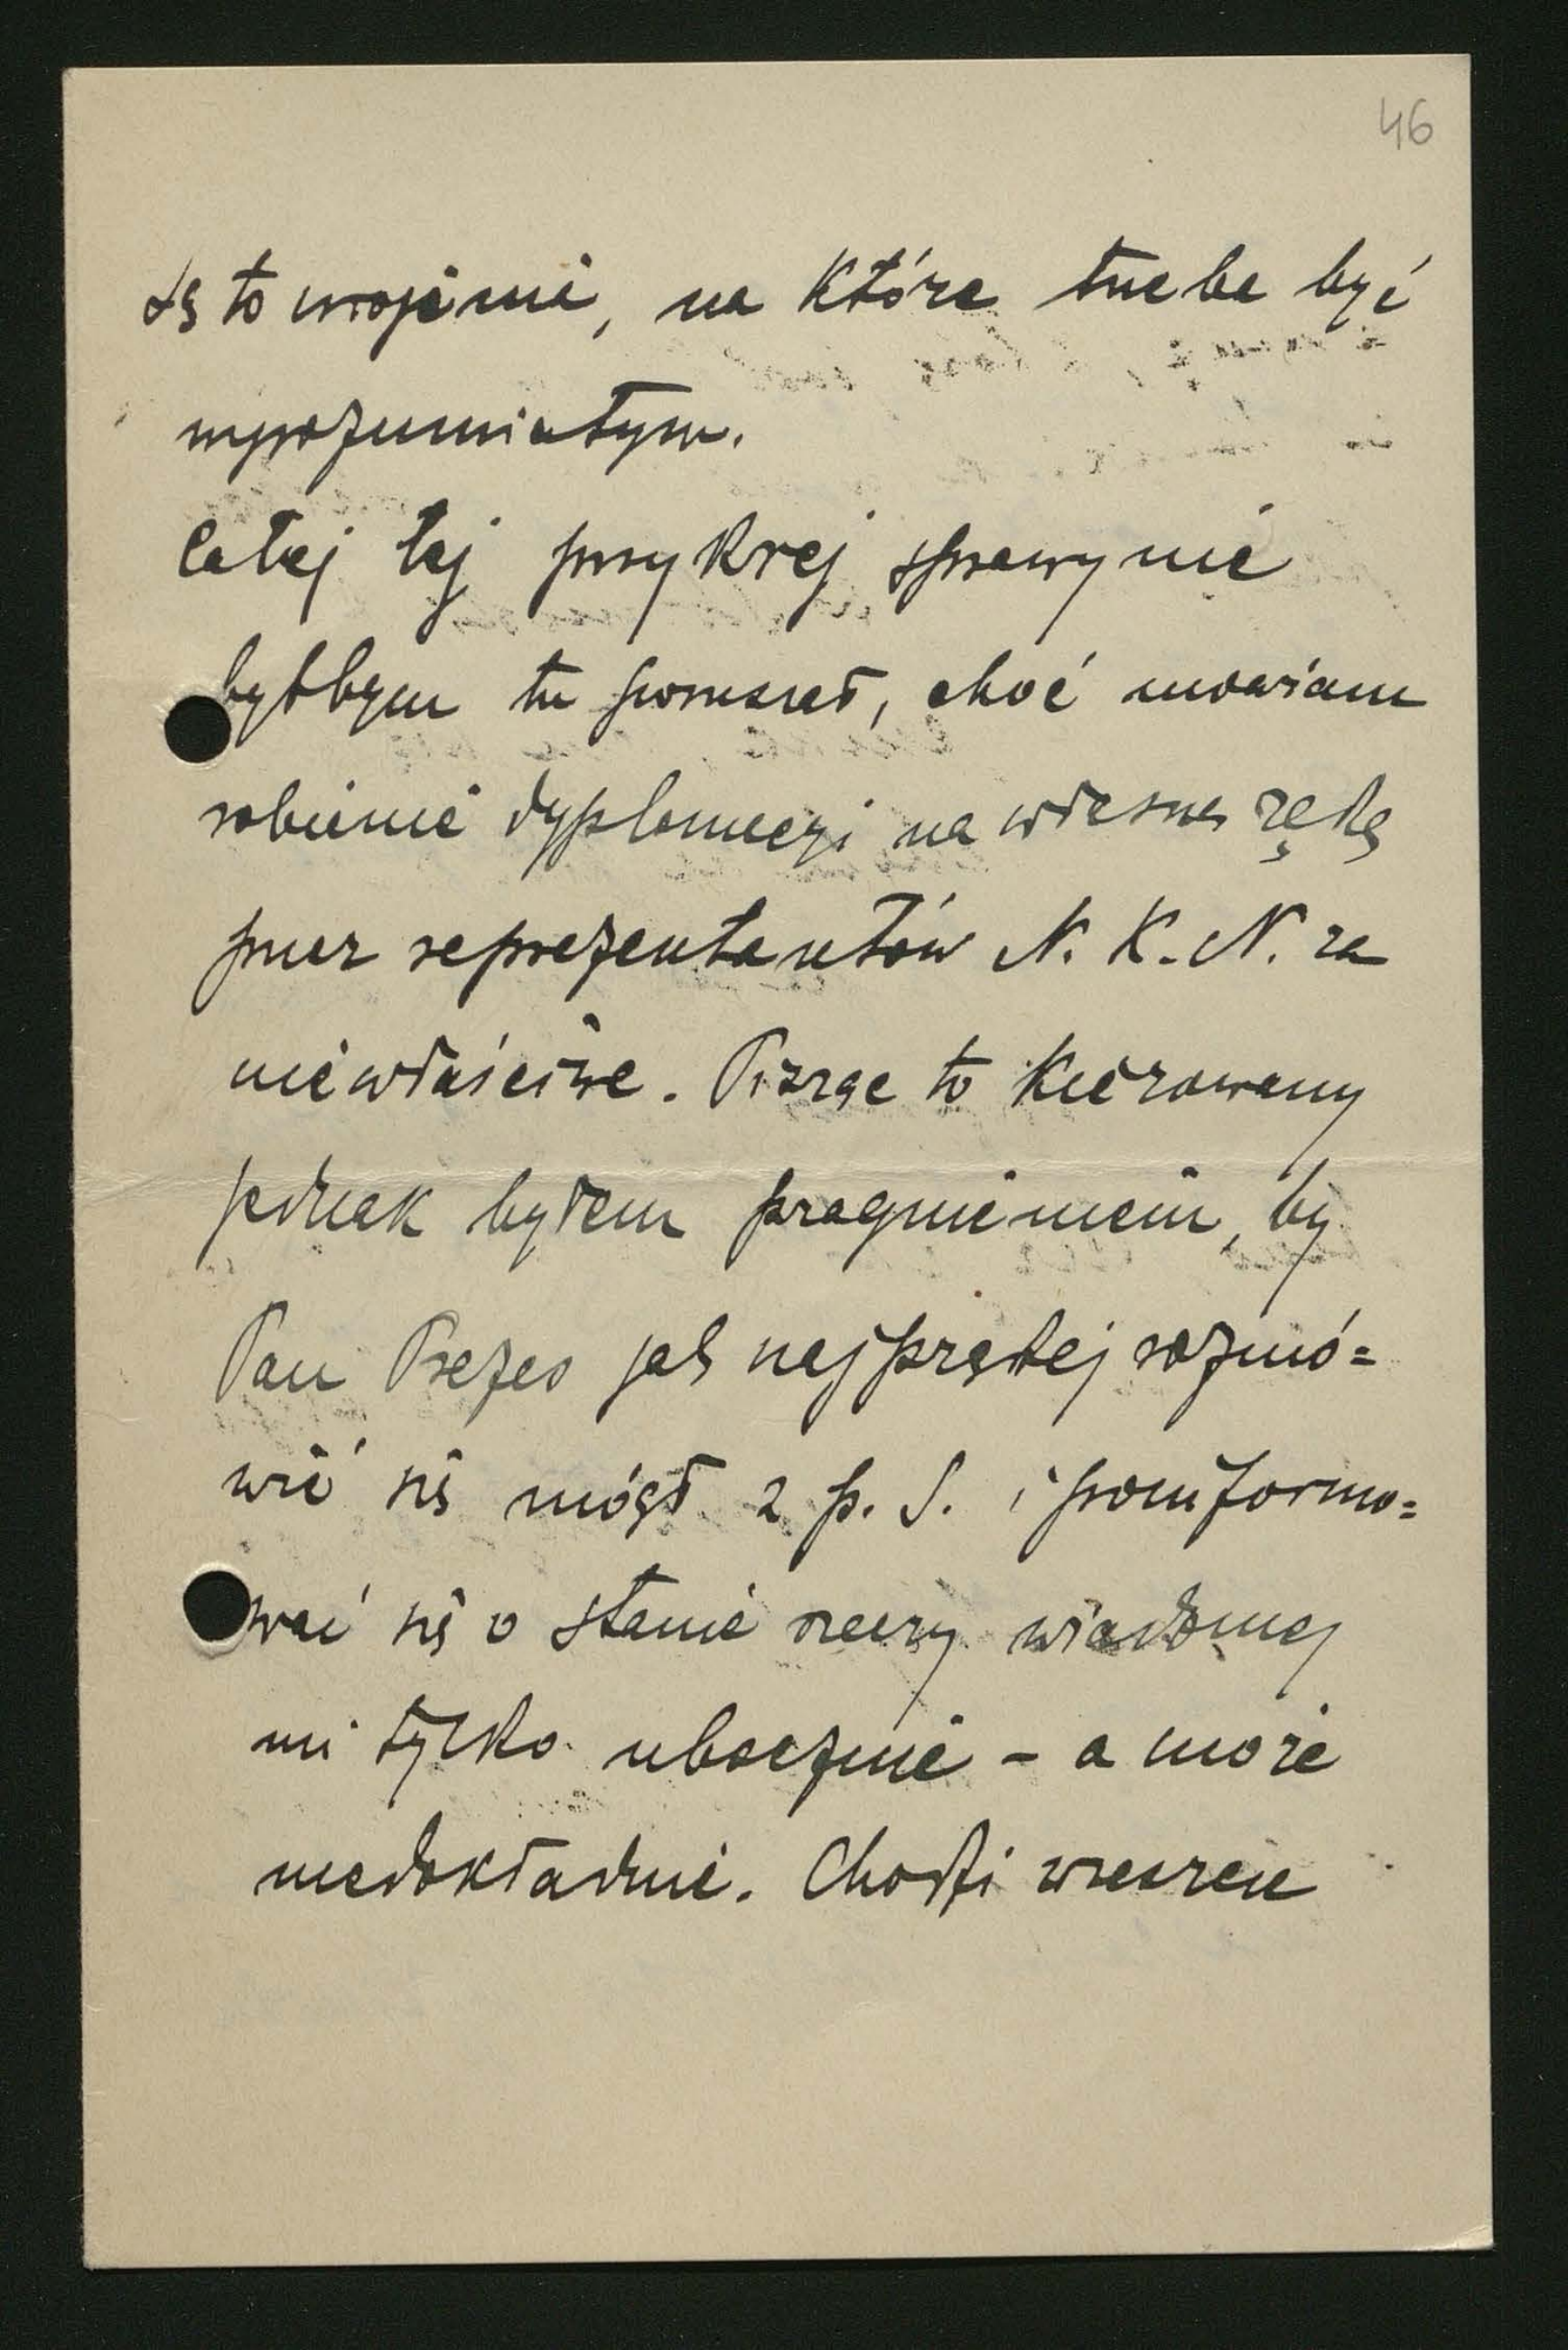 46
Są to urojenia, na które trzeba być
wyrozumiałym.
Całej tej przykrej sprawy nie
byłbym tu poruszał, choć uważam
robienie dyplomacyi na własną rękę
przez reprezentantów N. K. N. za
niewłaściwe. Pisząc to kierowany
jednak byłem pragnieniem, by
Pan Prezes jak najprędzej rozmó=
wić się mógł z p. S. i poinformo=
wać się o stanie rzeczy wiadomej
mi tylko ubocznie - a może
niedokładnie. Chodzi wreszcie